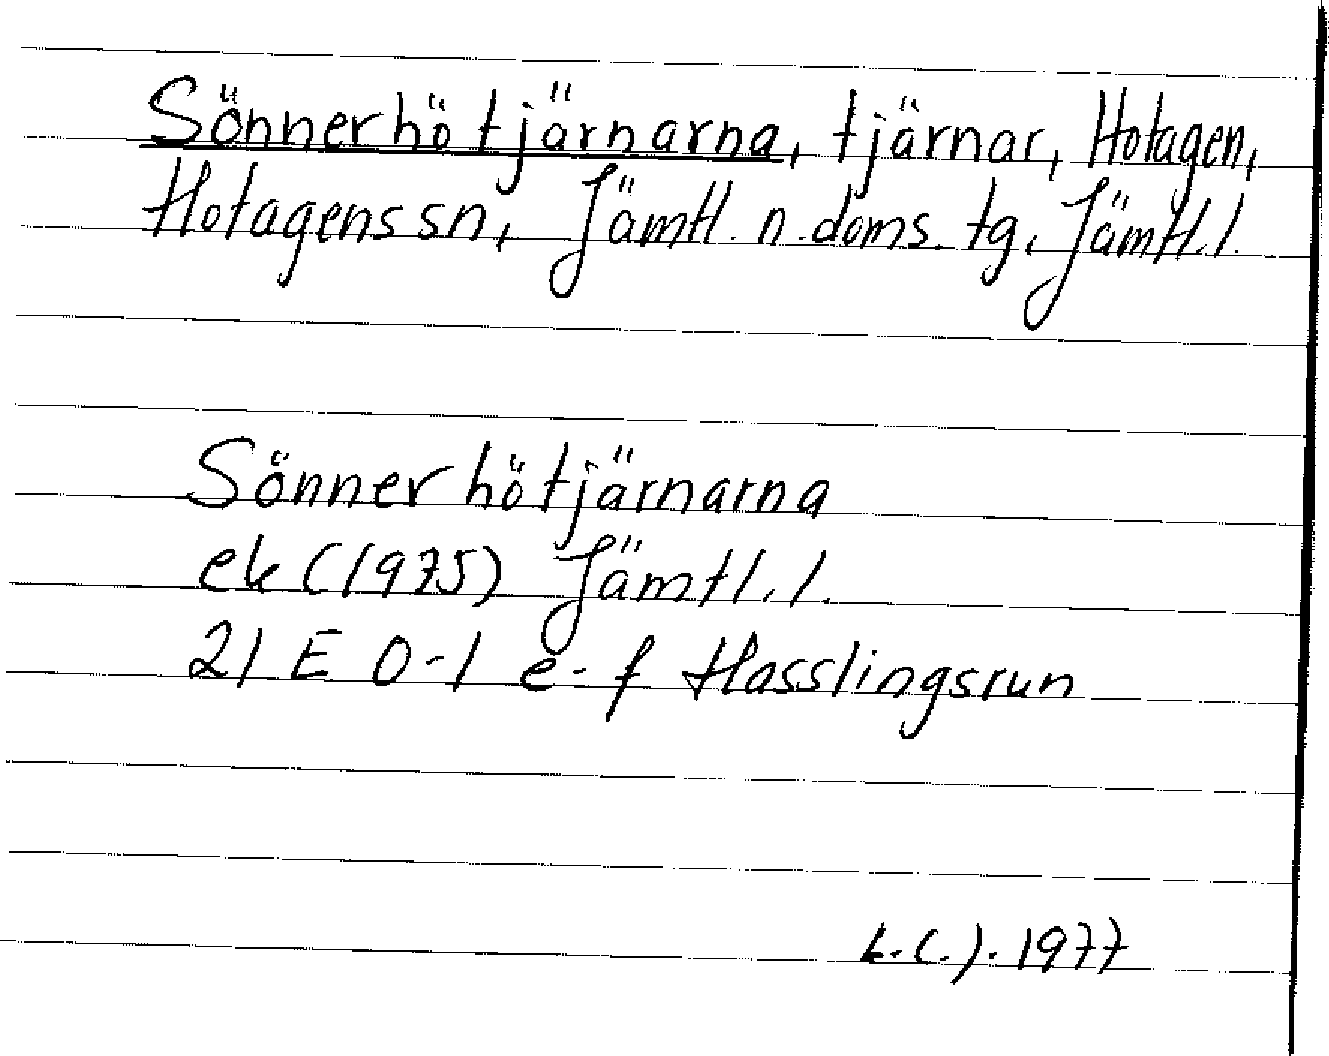 Sönnerhötjärnarna, tjärnar, Hotagen,
Hotagens sn, Jämtl. n. doms. tg, Jämtl. l.
Sönnerhötjärnarna
ek (1975) Jämtl. l.
21 E 0-1 e-f Hasslingsrun
1977